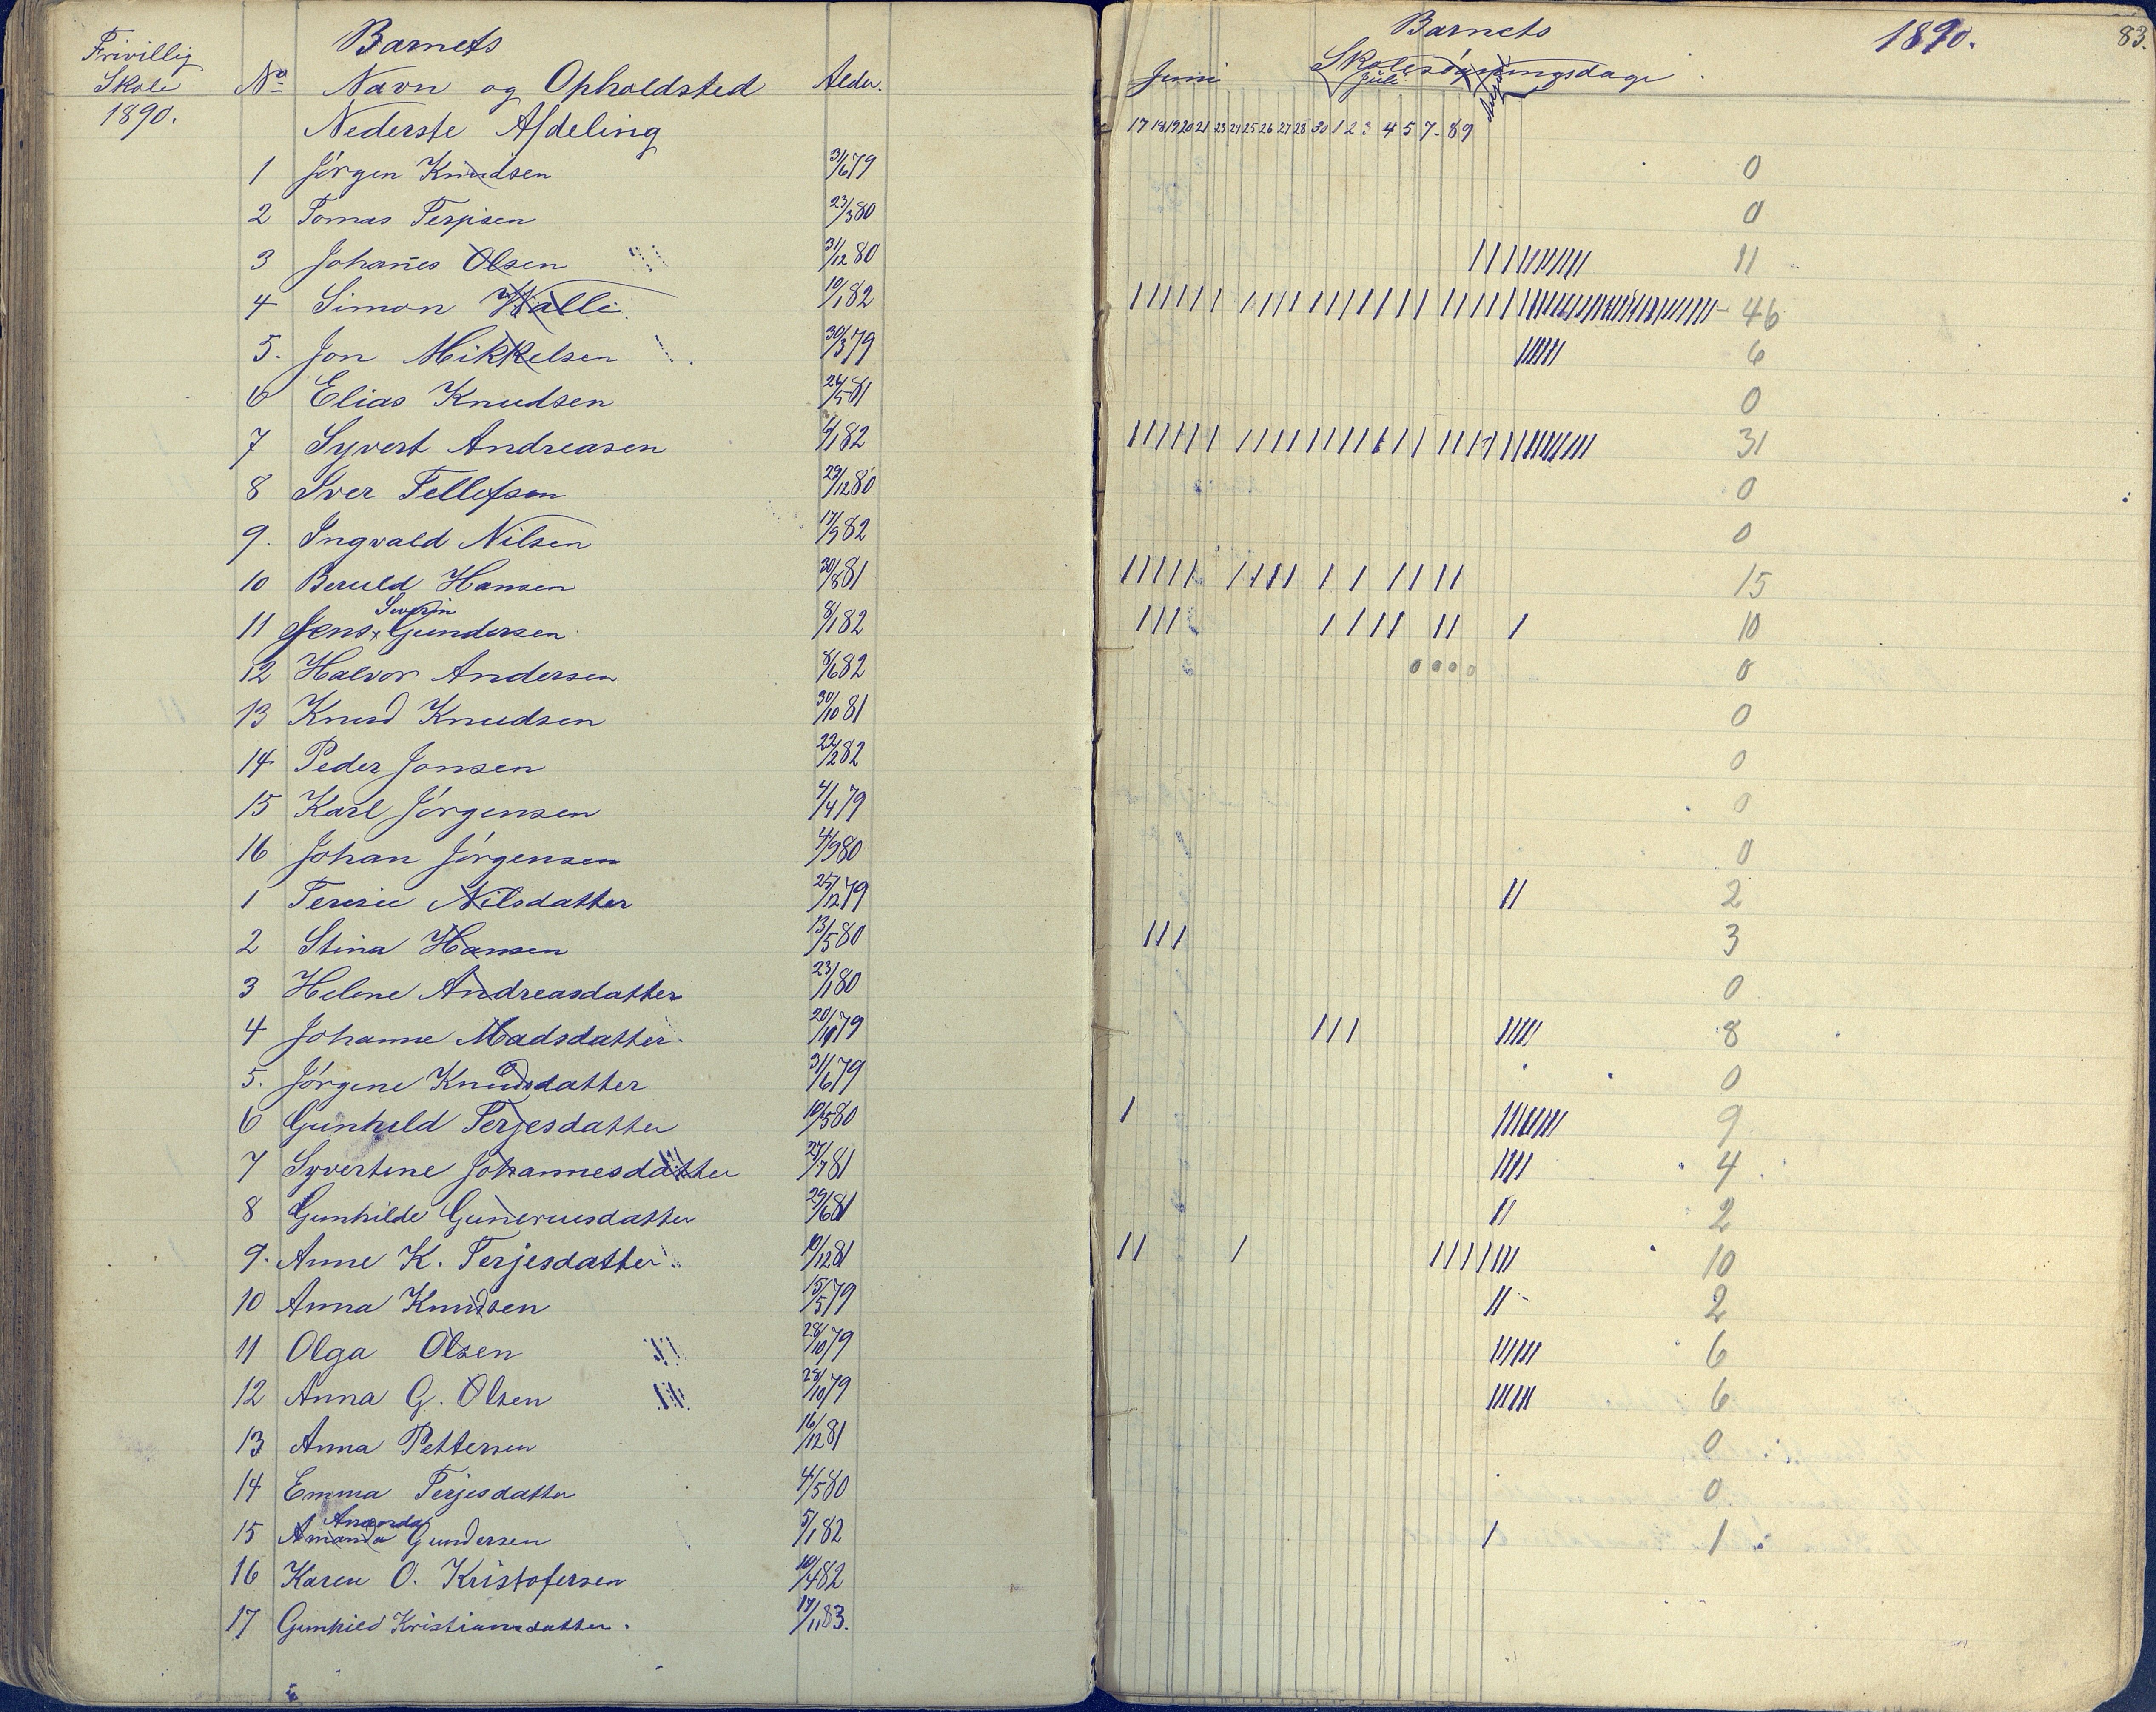 Frivillig
Skole
1890.
Barnets
No Navn og Opholdsted Alder.
Nederste Afdeling
1 Jörgen Knudsen 31/6 79
2 Tomas Terjisen 23/3 80
3 Johan̄es Olsen 31/12 80
4 Simon Walle. 10/1 82
5. Jon Mikkelsen 30/3 79
6 Elias Knudsen 26/5 81
7 Syvert Andreasen 6/1 82
8 Iver Tellefsen 29/12 80
9. Ingvald Nilsen 17/9 82
10 Beruld Hansen 30/8 81
Severin
11 Jens Gundersen 8/1 82
12 Halvor Andersen 8/6 82
13 Knud Knudsen 30/10 81
14 Peder Jonsen 22/2 82
15 Karl Jörgensen 4/4 79
16 Johan Jörgensen 4/9 80
1 Teresie Nilsdatter 25/12 79
2 Stina Hansen 13/5 80
3 Helene Andreasdatter 23/1 80
4 Johanne Madsdatter 20/10 79
5. Jörgine Knudsdatter 31/6 79
6 Gunhild Terjesdatter 10/5 80
7 Syvertine Johannesdatter 27/7 81
8 Gunhilde Guneriusdatter 29/6 81
9. Anne K. Terjesdatter 10/12 81
10 Anna Knudsen 15/5 79
11 Olga Olsen 28/10 79
12 Anna G. Olsen 28/10 79
13 Anna Pettersen 16/12 81
14 Emma Terjesdatter 4/5 80
Amanda
15 Amanda Gundersen 5/1 82
16 Karen O. Kristofersen 10/4 82
17 Gunhild Kristiansdatter. 17/1 83.
Barnets 1890. 83.
Skolesögningsdage
Juni Juli
17 18 19 20 21 23 24 25 26 27 28 30 1 2 3 4 5 7 8 9
0
0
11
46
6
0
31
0
0
15
10
0 0 0 0 0
0
0
0
0
2
3
0
8
0
9
4
2
10
2
6
6
0
0
1